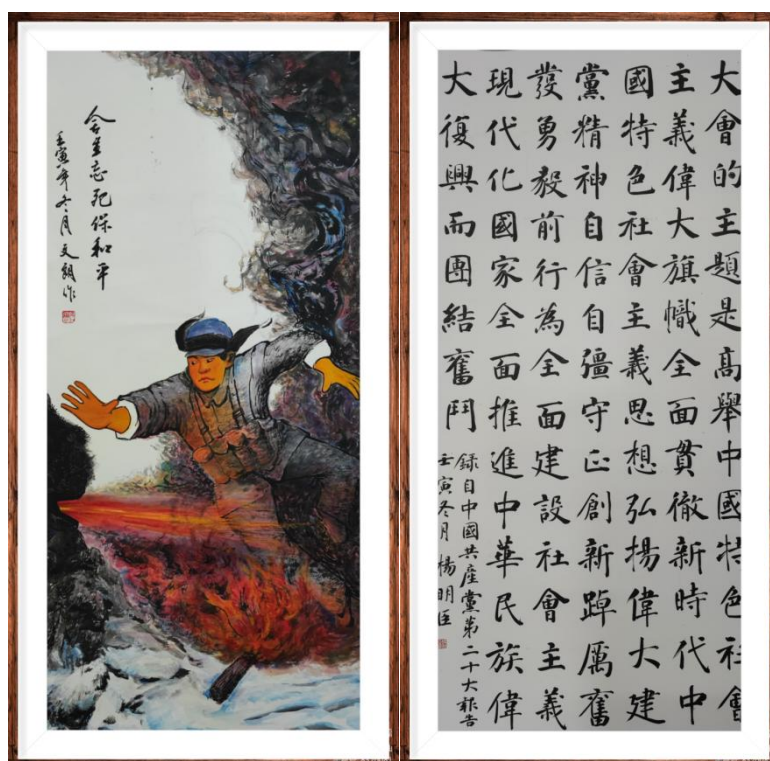 舍生忘死保和平
壬寅年冬月文作
大會的主題是高舉中國特色社會
主義偉大旗幟全面貫徹新時代中
國特色社會主義思想弘揚偉大建
黨精神自信自彊守正創新踔厲奮
發勇毅前行為全面建設社會主義
現代化國家全面推進中華民族偉
大復興而團結奮鬥
錄自中國共產黨第二十大報告
壬寅冬月楊明臣